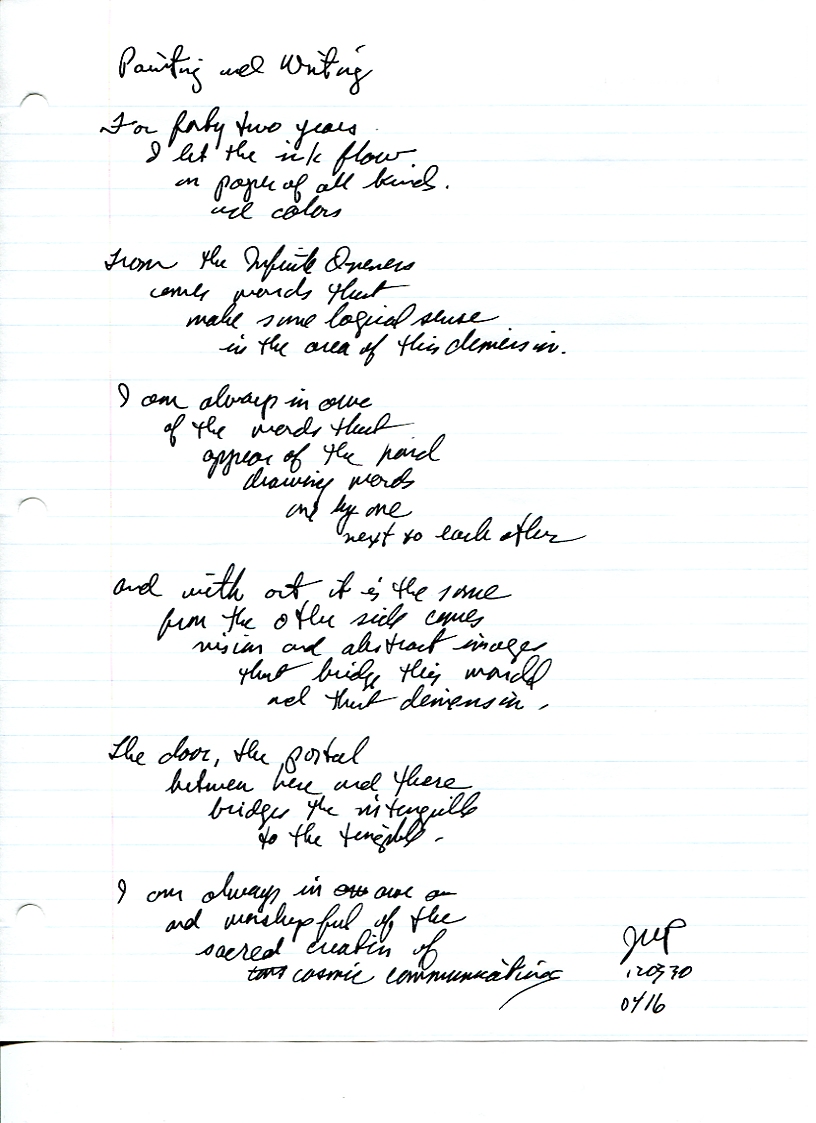 Painting and Writing
For forty two years
I let the ink flow
on paper of all kinds.
and colors
From the Infinite Oneness
comes words that
make some logical sense
in the area of this demension.
I am always in awe
of the words that
appear of the hand
drawing words
one by one
next to each other
and with art it is the same
from the other side comes
vision and abstract images
that bridge this world
and that demension.
The door, the portal
between here and there
bridges the intangible
to the tangible.
I am always in awe
and worshepful of the
sacred creation of
cosmic communications
JWP
120330
0416